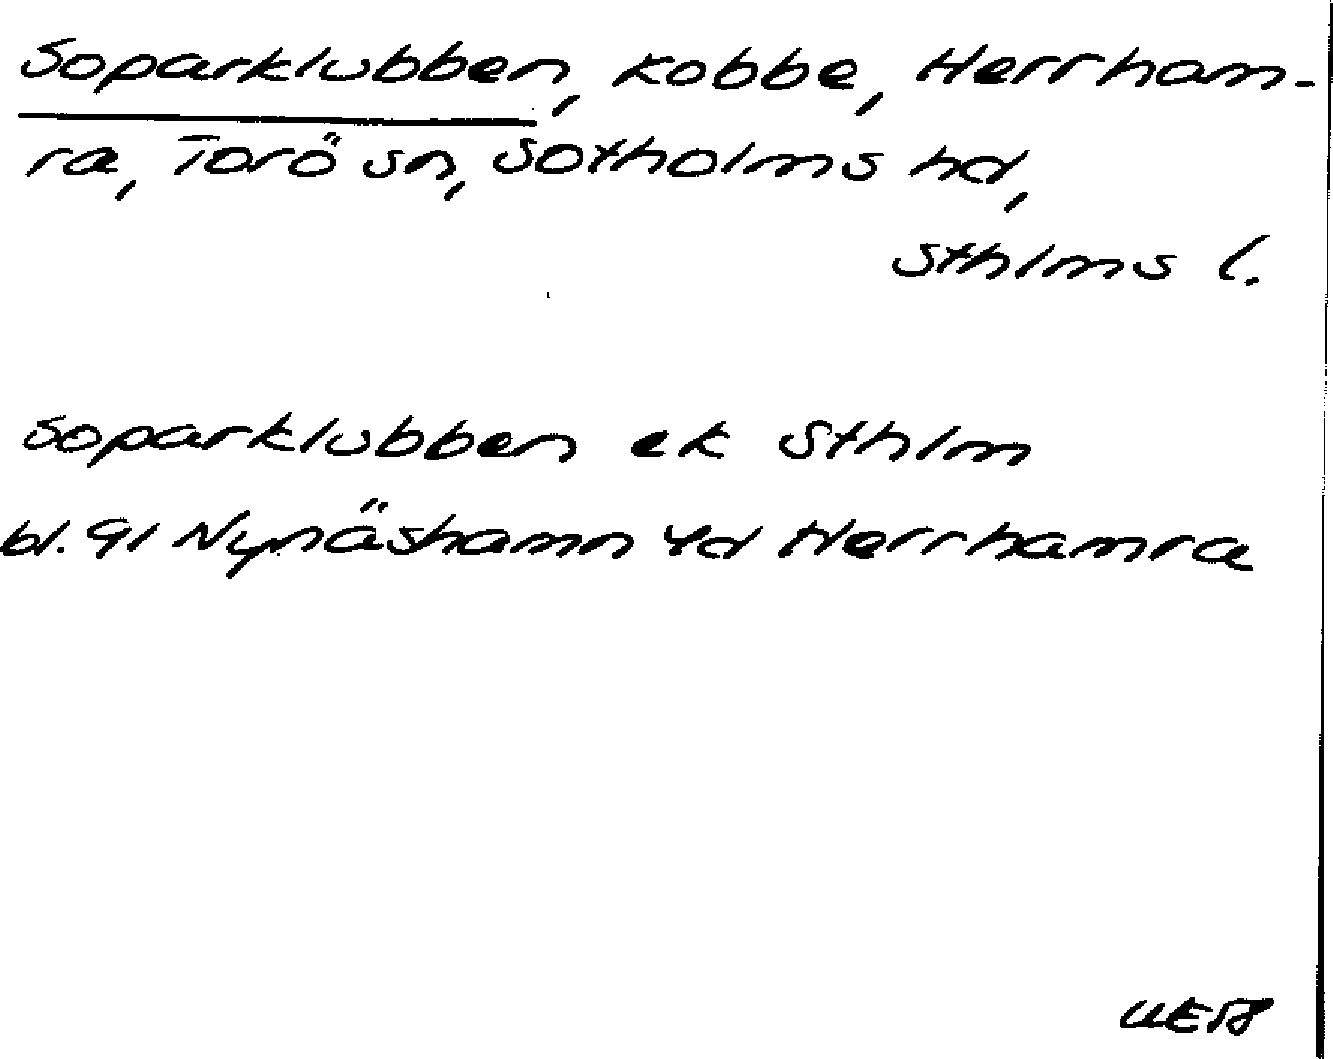 Soparklubben, kobbe, Herrham-
ra, Torö sn, Sotholms hd,
Sthlms l.
Soparklubben ek Sthlm
bl. 91 Nynäshamn 4d Herrhamra